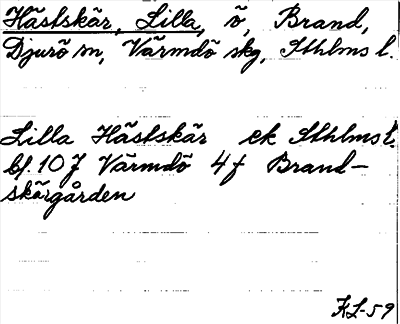 Hästskär, Lilla, ö, Brand,
Djurö sn, Värmdö skg, Sthlms l.
Lilla Hästskär ek Sthlms l.
bl. 10 J Värmdö 4 f Brand-
skärgården
KL-59